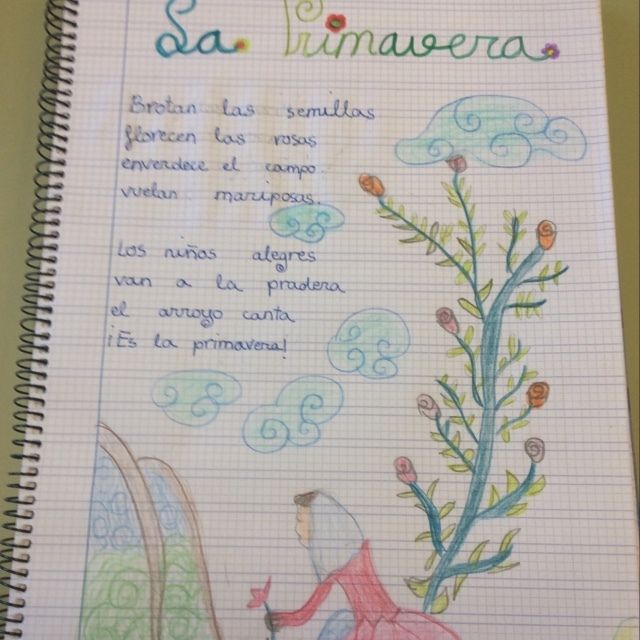 La Primavera.
Brotan las semillas
florecen las rosas
enverdece el campo
vuelan mariposas.
Los niños alegres
van a la pradera
el arroyo canta
¡Es la primavera!